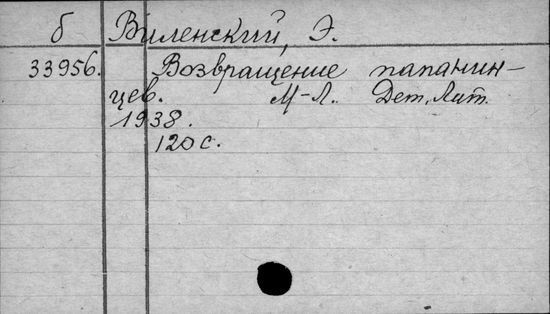 б Виленский, Э.
33956. Возвращение папанин-
цев. М-Л. Дет. Лит.
1938.
120 с.